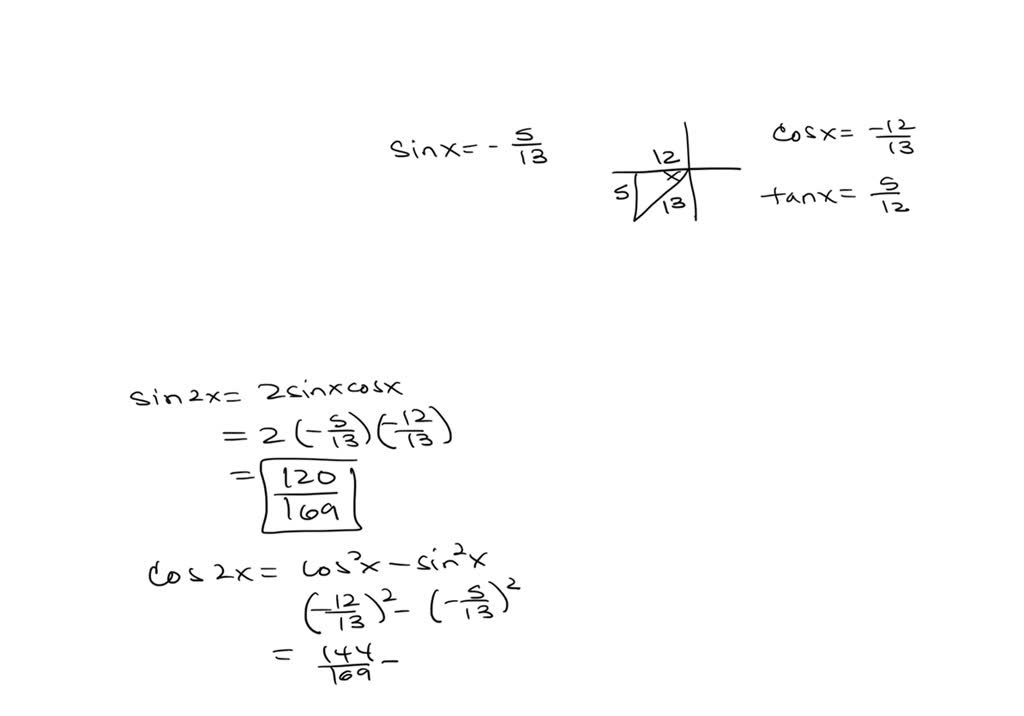 sinx = - 5/13
12
x
5
13
cosx = -12/13
tanx = 5/12
sin2x = 2sinxcosx
= 2 (-5/13)(-12/13)
= 120/169
cos2x = cos²x - sin²x
(-12/13)² - (-5/13)²
= 144/169 -